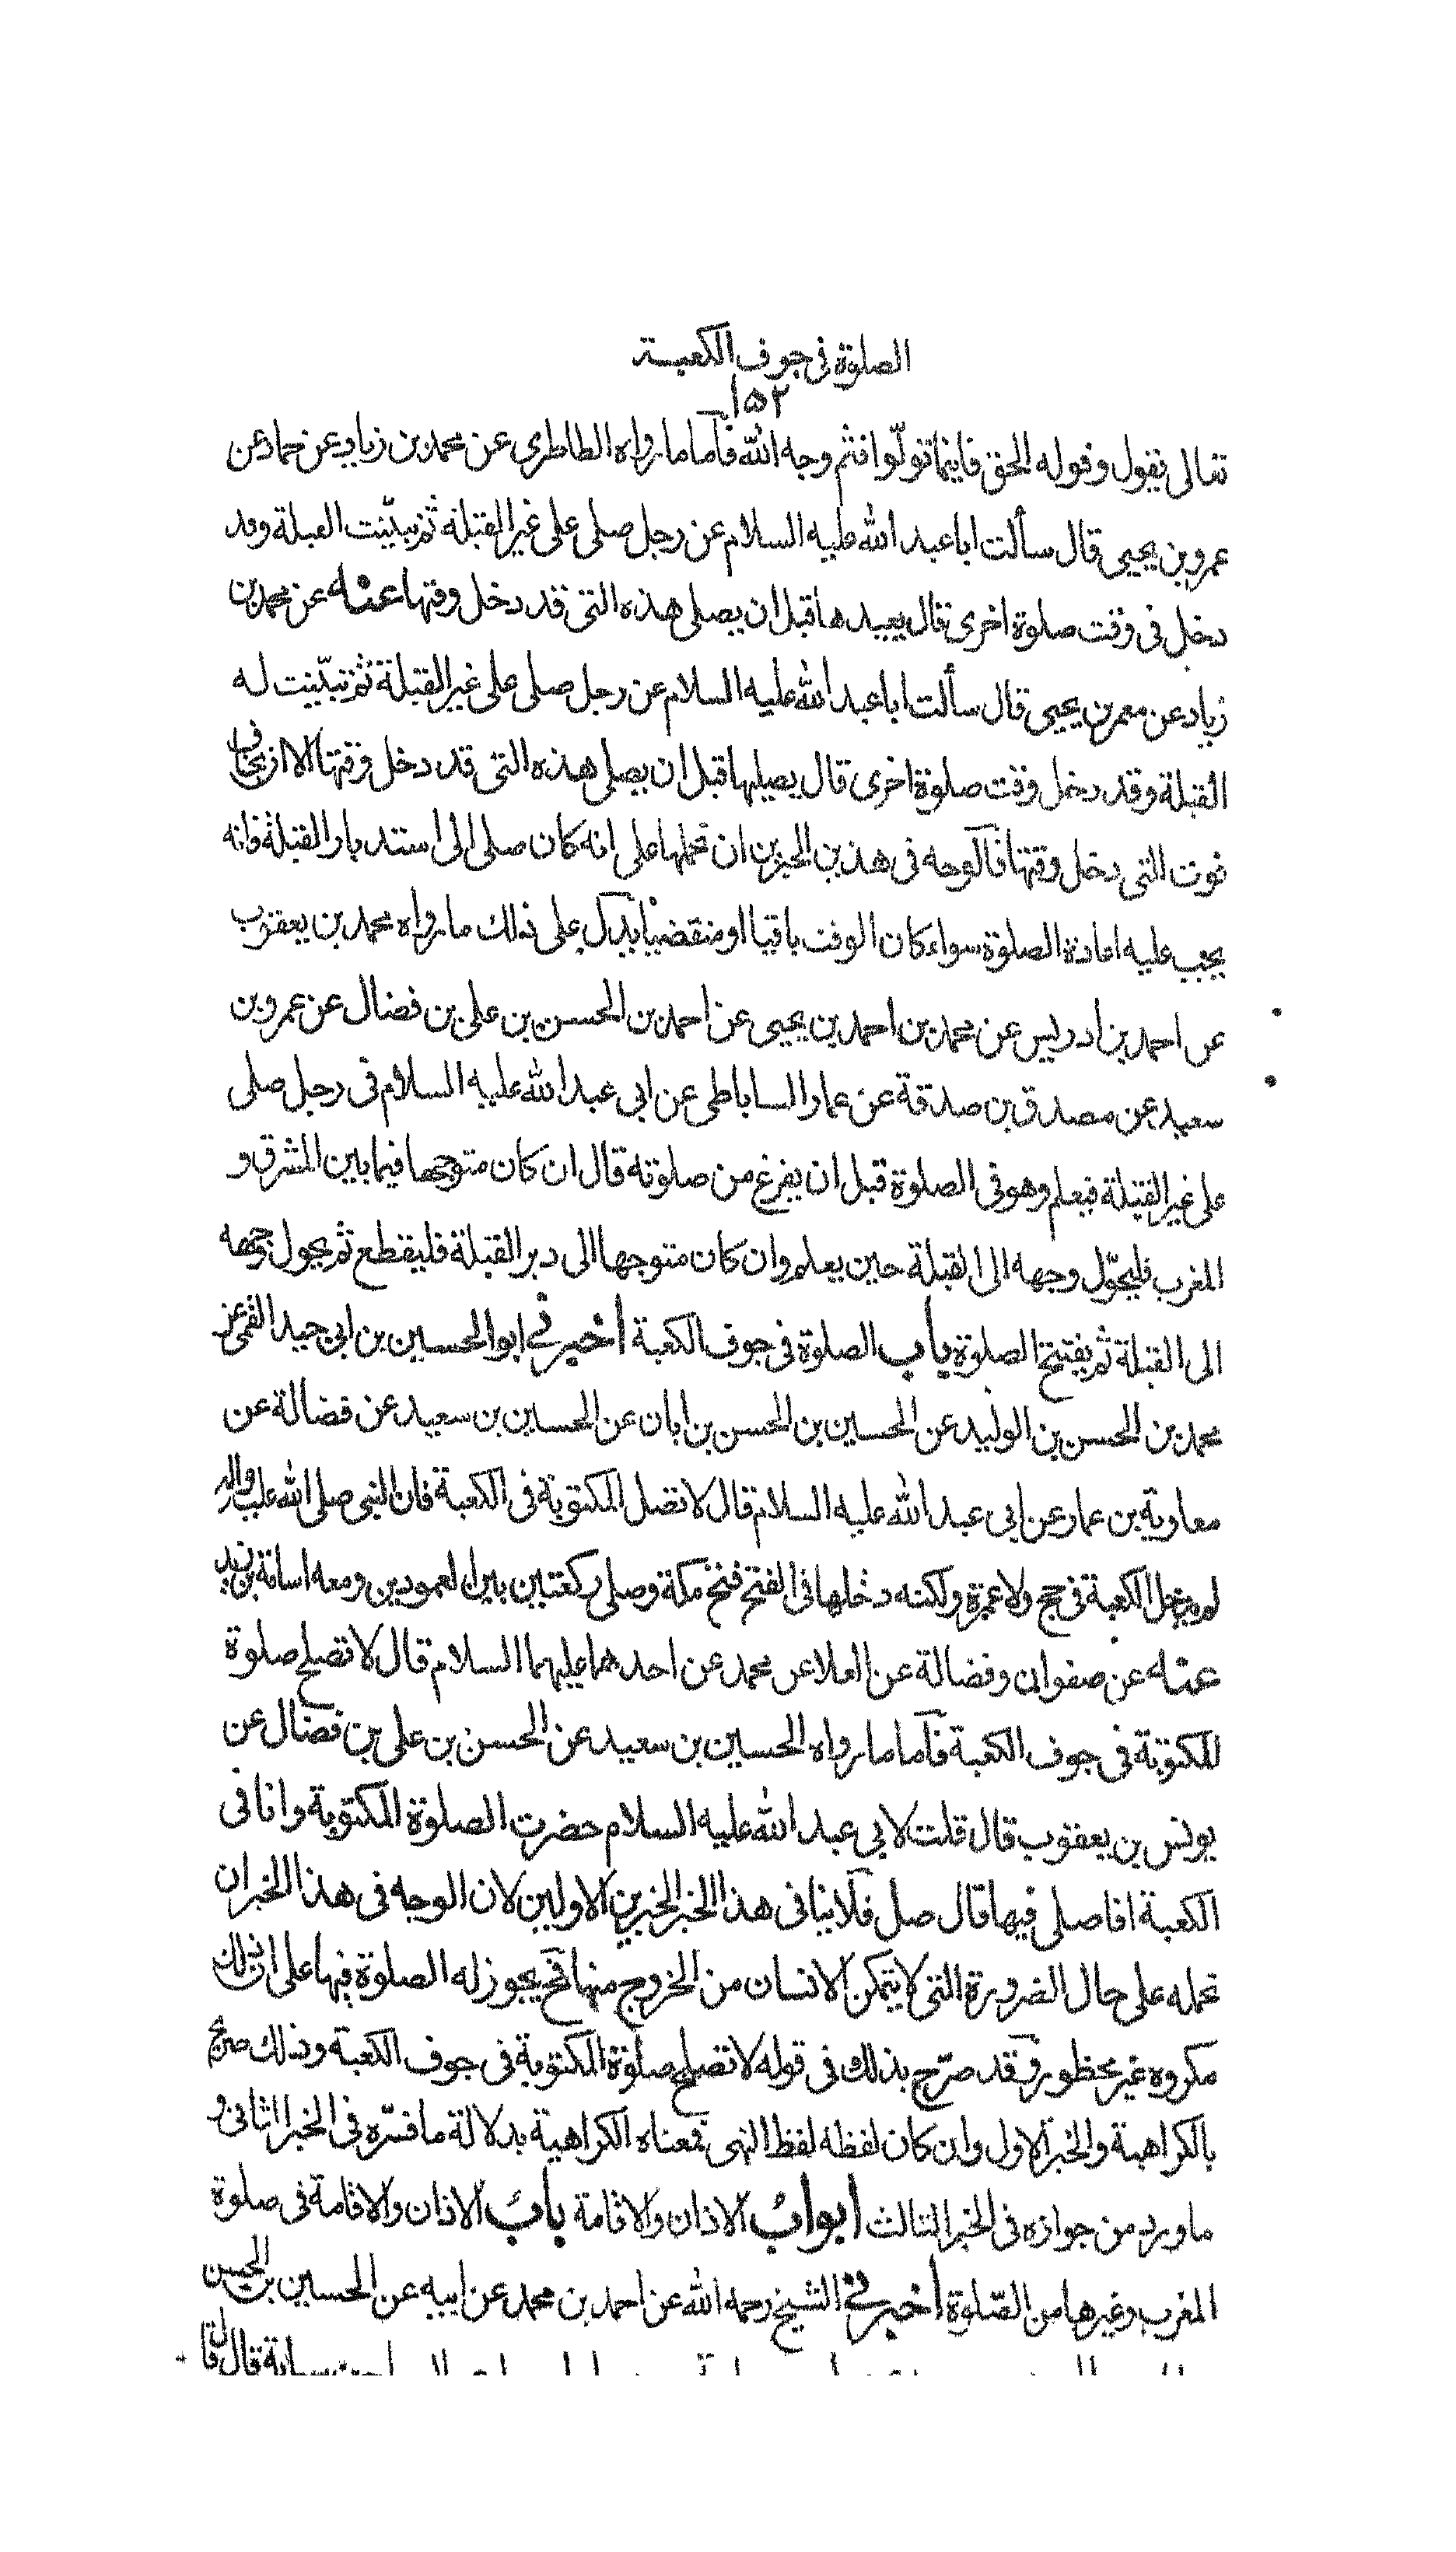 الصلوة فى جوف الكعبة
١٥٢
تعالى يقول وقوله الحق فاينما تولّوا فثم وجه الله فامّا ما رواه الطاطري عن محمد بن زياد عن حماد عن
عمرو بن يحيى قال سألت ابا عبد الله عليه السلام عن رجل صلى على غير القبلة ثم تبيّنت القبلة وقد
دخل فى وقت صلوة اخرى قال يعيدها قبل ان يصلى هذه التى قد دخل وقتها عنه عن محمد بن
زياد عن معمر بن يحيى قال سألت ابا عبد الله عليه السلام عن رجل صلى على غير القبلة ثم تبيّنت له
القبلة وقد دخل وقت صلوة اخرى قال يصليها قبل ان يصلى هذه التى قد دخل وقتها الا ان يخاف
فوت التى دخل وقتها فالوجه فى هذين الخبرين ان نحملها على انه كان صلى الى استدبار القبلة فانه
يجب عليه اعادة الصلوة سواء كان الوقت باقيا او منقضيا يدل على ذلك ما رواه محمد بن يعقوب
عن احمد بن ادريس عن محمد بن احمد بن يحيى عن احمد بن الحسن بن على بن فضال عن عمرو بن
سعيد عن مصدق بن صدقة عن عمار الساباطى عن ابى عبد الله عليه السلام فى رجل صلى
على غير القبلة فيعلم وهو فى الصلوة قبل ان يفرغ من صلوته قال ان كان متوجها فيما بين المشرق و
المغرب فليحوّل وجهه الى القبلة حين يعلم وان كان متوجها الى دبر القبلة فليقطع ثم يحول وجهه
الى القبلة ثم يفتتح الصلوة باب الصلوة فى جوف الكعبة اخبرنى ابو الحسين بن ابى جيد القمى عن
محمد بن الحسن بن الوليد عن الحسين بن الحسن بن ابان عن الحسين بن سعيد عن فضالة عن
معاوية بن عمار عن ابى عبد الله عليه السلام قال لا تصل المكتوبة فى الكعبة فان النبى صلى الله عليه واله
لم يدخل الكعبة فى حج ولا عمرة ولكنه دخلها فى الفتح فتح مكة وصلى ركعتين بين العمودين ومعه اسامة بن زيد
عنه عن صفوان وفضالة عن العلا عن محمد عن احدهما عليهما السلام قال لا تصلح صلوة
المكتوبة فى جوف الكعبة فامّا ما رواه الحسين بن سعيد عن الحسن بن على بن فضال عن
يونس بن يعقوب قال قلت لابى عبد الله عليه السلام حضرت الصلوة المكتوبة وانا فى
الكعبة افاصلى فيها قال صل فلا ينافى هذا الخبر الخبرين الاولين لان الوجه فى هذا الخبر ان
نحمله على حال الضرورة التى لا يتمكن الانسان من الخروج منها فح يجوز له الصلوة فيها على ان ذلك
مكروه غير محظور وقد صرّح بذلك فى قوله لا تصلح صلوة المكتوبة فى جوف الكعبة وذلك صريح
بالكراهية والخبر الاول وان كان لفظه لفظ النهى فمعناه الكراهية بدلالة ما فسّره فى الخبر الثانى و
ما ورد من جوازه فى الخبر الثالث ابواب الاذان والاقامة باب الاذان والاقامة فى صلوة
المغرب وغيرها من الصّلوة اخبرنى الشيخ رحمه الله عن احمد بن محمد عن ابيه عن الحسين بن الحسن